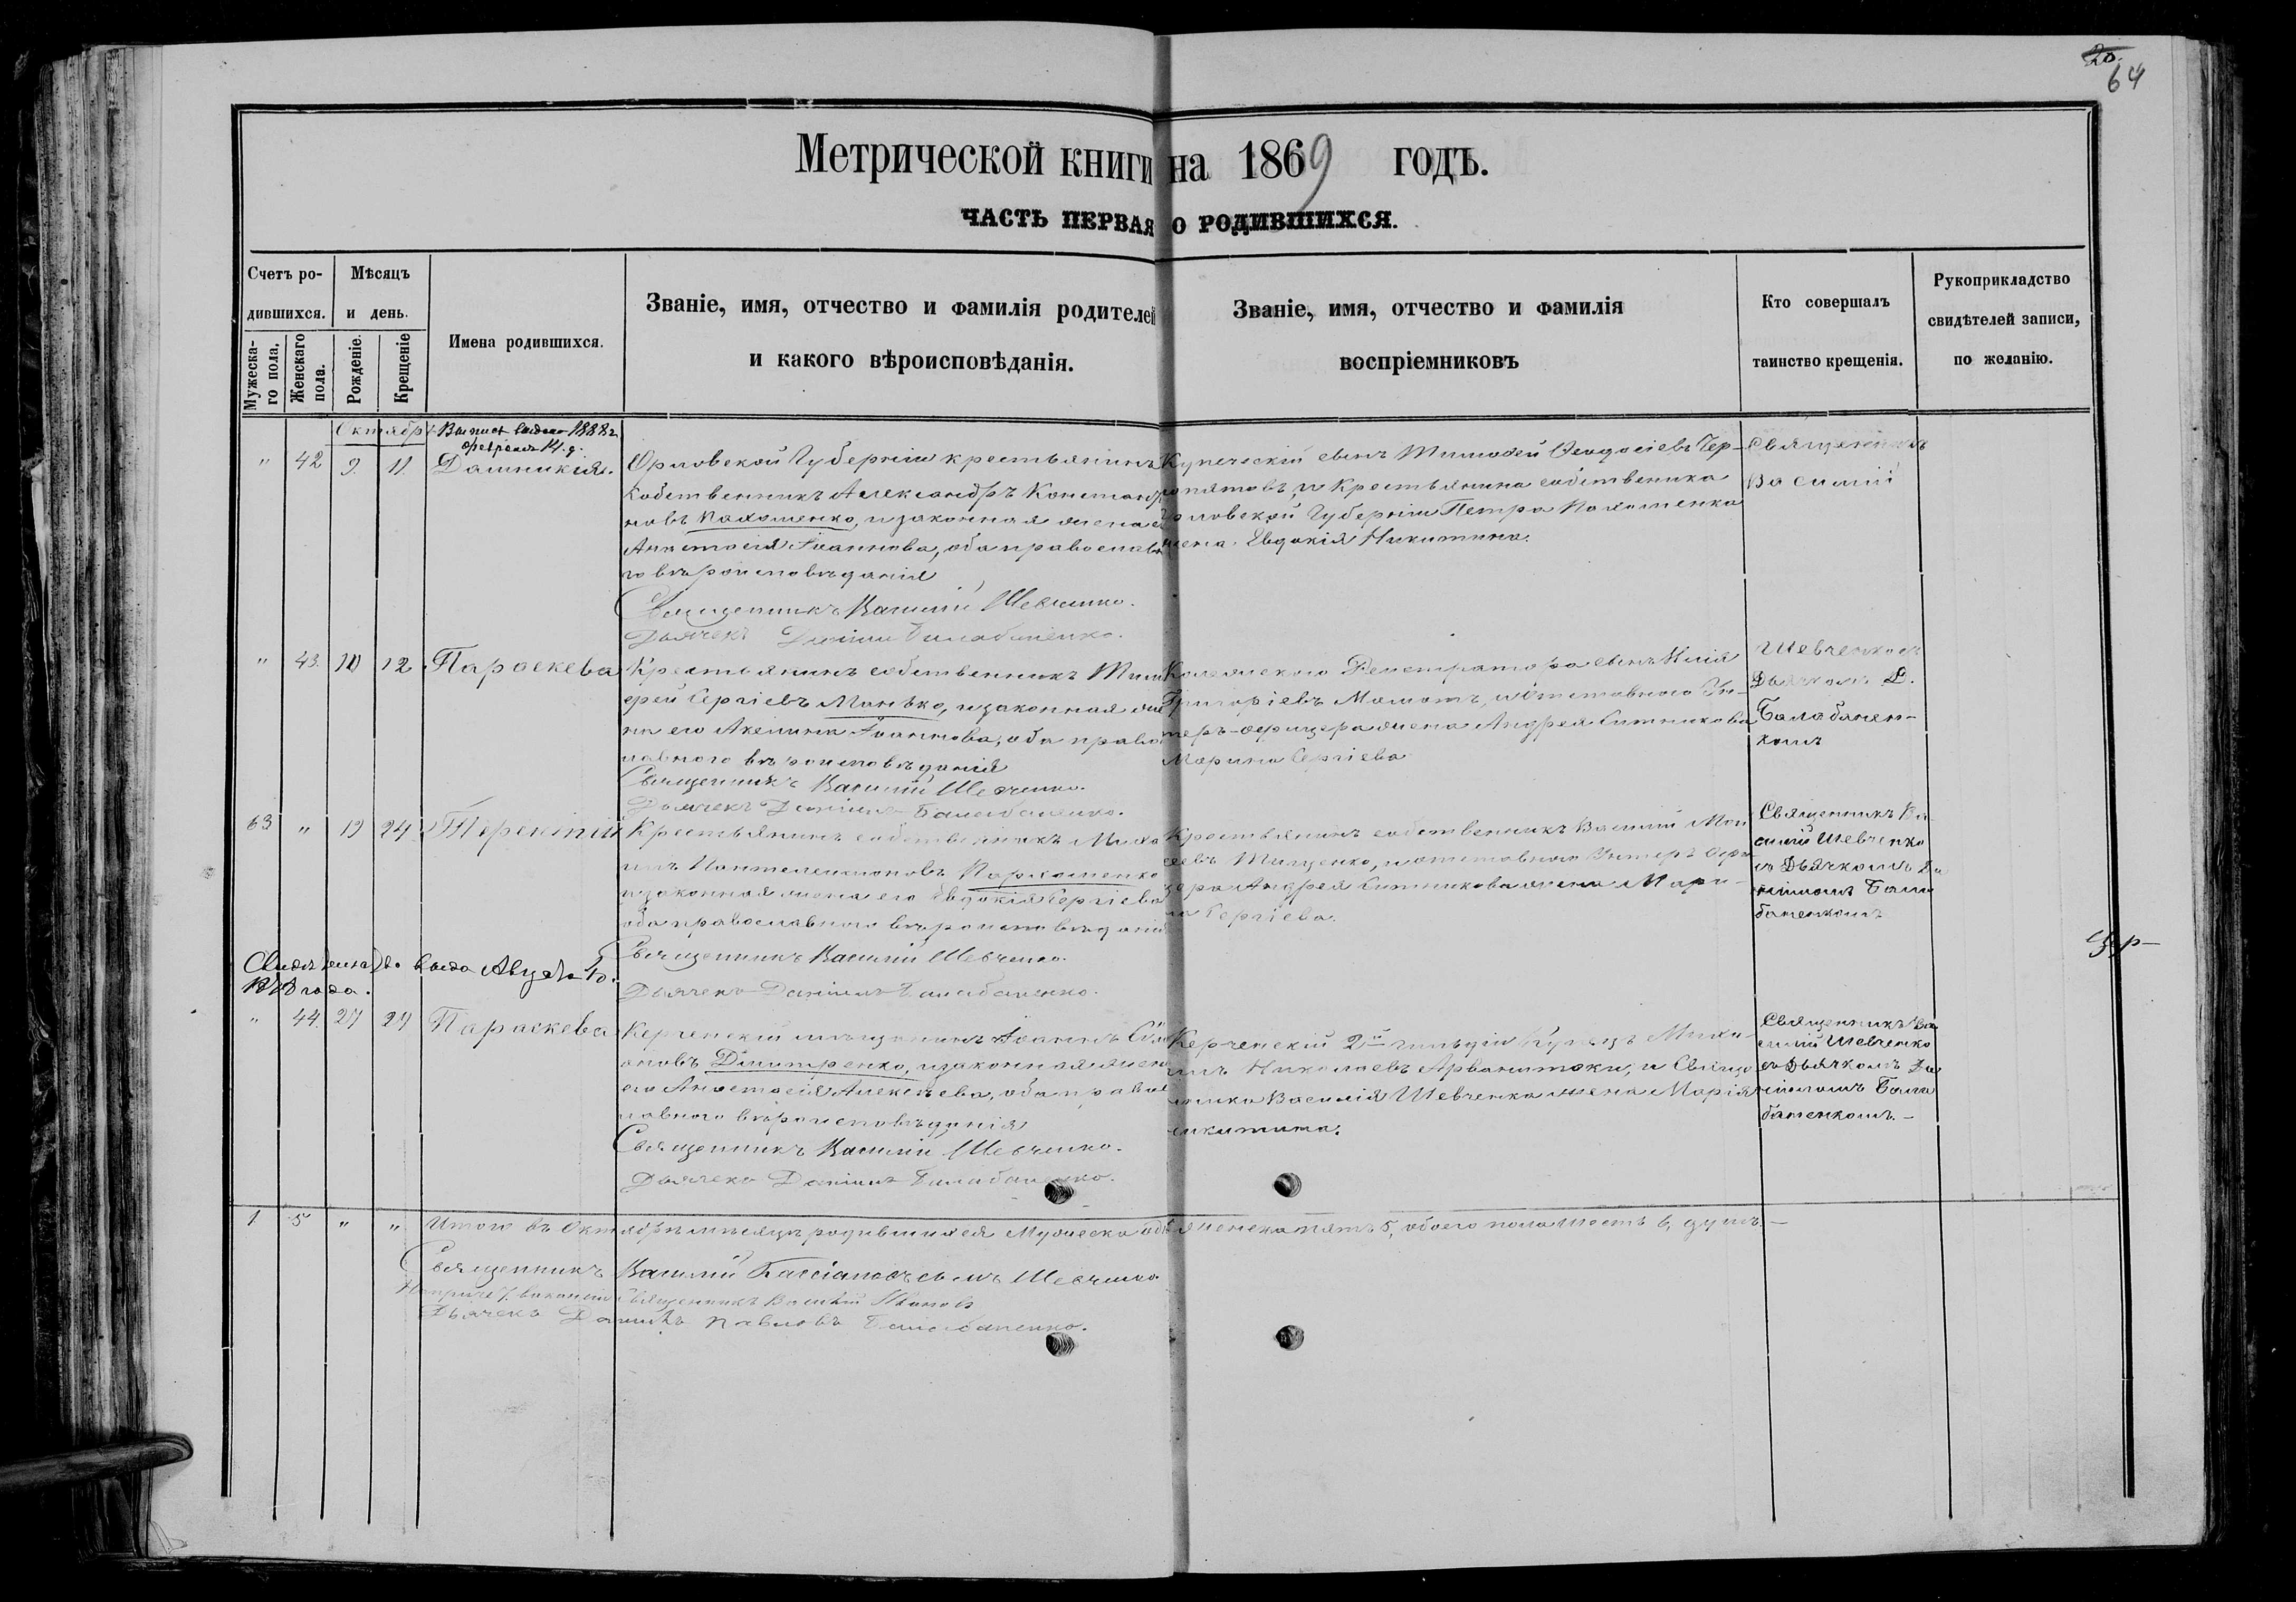 20.
64
Метрической книги на 1869 годъ.
ЧАСТЬ ПЕРВАЯ О РОДИВШИХСЯ.
Счетъ ро-
дившихся.
Мужеска-
го пола.
Женскаго
пола.
Мѣсяцъ
и день.
Рожденіе.
Крещеніе
Имена родившихся.
Званіе, имя, отчество и фамилія родителей
и какого вѣроисповѣданія.
Званіе, имя, отчество и фамилія
воспріемниковъ
Кто совершалъ
таинство крещенія.
Рукоприкладство
свидѣтелей записи,
по желанію.
Октябрь
1888 г.
14
" 42 9 11
Орловской Губерніи крестьянинъ
собственникъ Александръ Констант
новъ Пахоменко, и законная жена е
Анастасія Іоаннова, оба православ
го вѣроисповѣданія
Священникъ Василій Шевченко.
Дьячекъ Даніилъ Балабаненко.
Купеческій сынъ Тимофей Феодосіевъ Чер-
нопятовъ, и крестьянина собственика
Орловской Губерніи Петра Пахоменка
жена Евдокія Никитина.
Священникъ
Василій
" 43. 10 12 Параскева
Крестьянинъ собственникъ Тим
офей Сергіевъ Манько, и законная же
на его Акилина Іоаннова, оба правос
лавного вѣроисповѣданія
Священникъ Василій Шевченко.
Дьячекъ Даніилъ Балабаненко.
Колежскаго Регистратора сынъ Илія
Григоріевъ Мамотъ, и отставного Ун-
теръ-офицера жена Андрея Ситникова
Марина Сергіева
Шевченко съ
Дьячкомъ Д.
Балабанен-
комъ
63 " 19 24 Терентій
Крестьянинъ собственникъ Миха
илъ Пантелеимоновъ Пархоменко
и законная жена его Евдокія Сергіева
оба православного вѣроисповѣданія
Священникъ Василій Шевченко.
Дьячекъ Даніилъ Балабаненко.
Крестьянинъ собственникъ Василій Мои
сеевъ Тищенко, и отставного Унтеръ Офи
цера Андрея Ситникова жена Мари-
на Сергіева.
Священникъ Ва-
силій Шевченко
съ Дьячкомъ Да
ніиломъ Бала
баненкомъ
Свидѣтельство выдано Августа 10.
1878 года.
" 44. 27 29 Параскева
Керченскій мѣщанинъ Іоаннъ Сим
оновъ Димитренко, и законная жена
его Анастасія Алексѣева, оба правос
лавного вѣроисповѣданія
Священникъ Василій Шевченко.
Дьячекъ Даніилъ Балабаненко.
Керченскій 2й гильдіи Купецъ Миха-
илъ Николаевъ Арванитаки, и Священ
ника Василія Шевченка жена Марія
Никитина.
Священникъ Ва
силій Шевченко
съ Дьячкомъ Да
ніиломъ Бала
баненкомъ.-
1 5 " " Итого въ Октябрѣ мѣсяцѣ родившихся Мужеска одн женска пять 5, обоего пола шесть 6, душъ.-
Священникъ Василій Кассіановъ сынъ Шевченко
Священникъ Василій
Дьячекъ Даніилъ Павловъ Балабаненко.